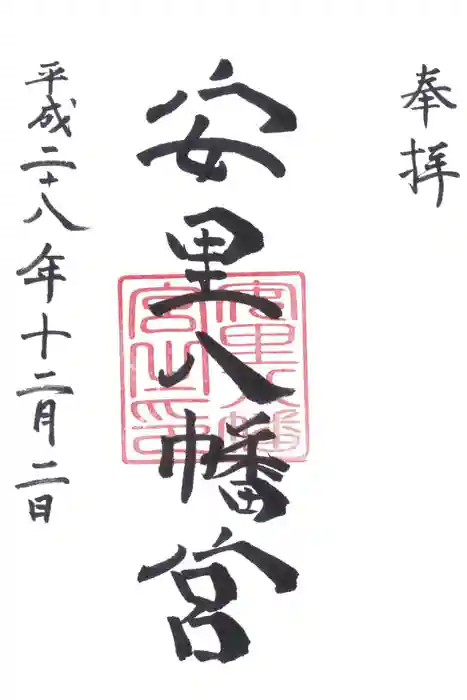 奉拝
安里八幡宮
安里八幡宮之印
平成二十八年十二月二日